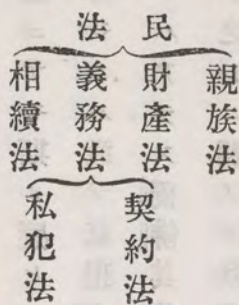 民法
親族法
財產法
義務法
相續法
契約法
私犯法